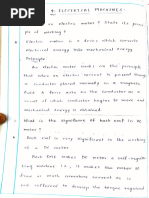 ELECTRICAL MACHINES:
an electric motor ? State its princi-
ple of working ?
Electric motor is a device which converts
electrical energy into mechanical energy
Principle:
An electric motor works on the principle
that when an electric current is passed through
a conductor placed normally in a magnetic
field a force acts on the conductor as a
result of which the conductor begins to move and
mechanical energy is obtained.
What is the significance of back emf in DC
motor ?
Back emf is very significant in the working
of a DC motor.
Back emf makes DC motor a self-regula-
ting machine i.e., it makes the motor to
draw as much armature current as is
just sufficient to develop the torque required